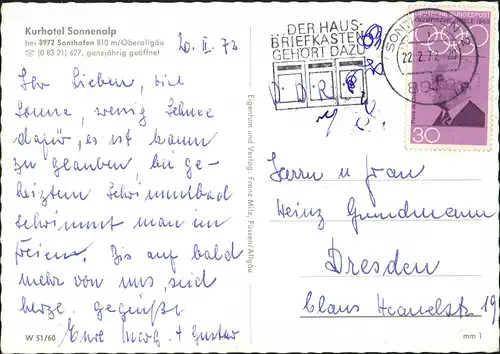 Kurhotel Sonnenalp
bei 8972 Sonthofen 810 m/Oberallgäu
☎ (0 83 21) 627, ganzjährig geöffnet
20. II. 72
Ihr Lieben, viel
Sonne, wenig Schnee
dafür, es ist kaum
zu glauben, bei ge-
heiztem Schwimmbad
schwimmt man im
Freien. Bis auf bald
mehr von uns, seid
herzl. gegrüßt
Eure Marg. + Gustav
W 51/60
Eigentum und Verlag: Franz Milz, Füssen/Allgäu
DER HAUS-
BRIEFKASTEN
GEHÖRT DAZU
D. D. R.
SONTHOFEN
22.2.72
30
Herrn u Frau
Heinz Grundmann
Dresden
19
mm 1